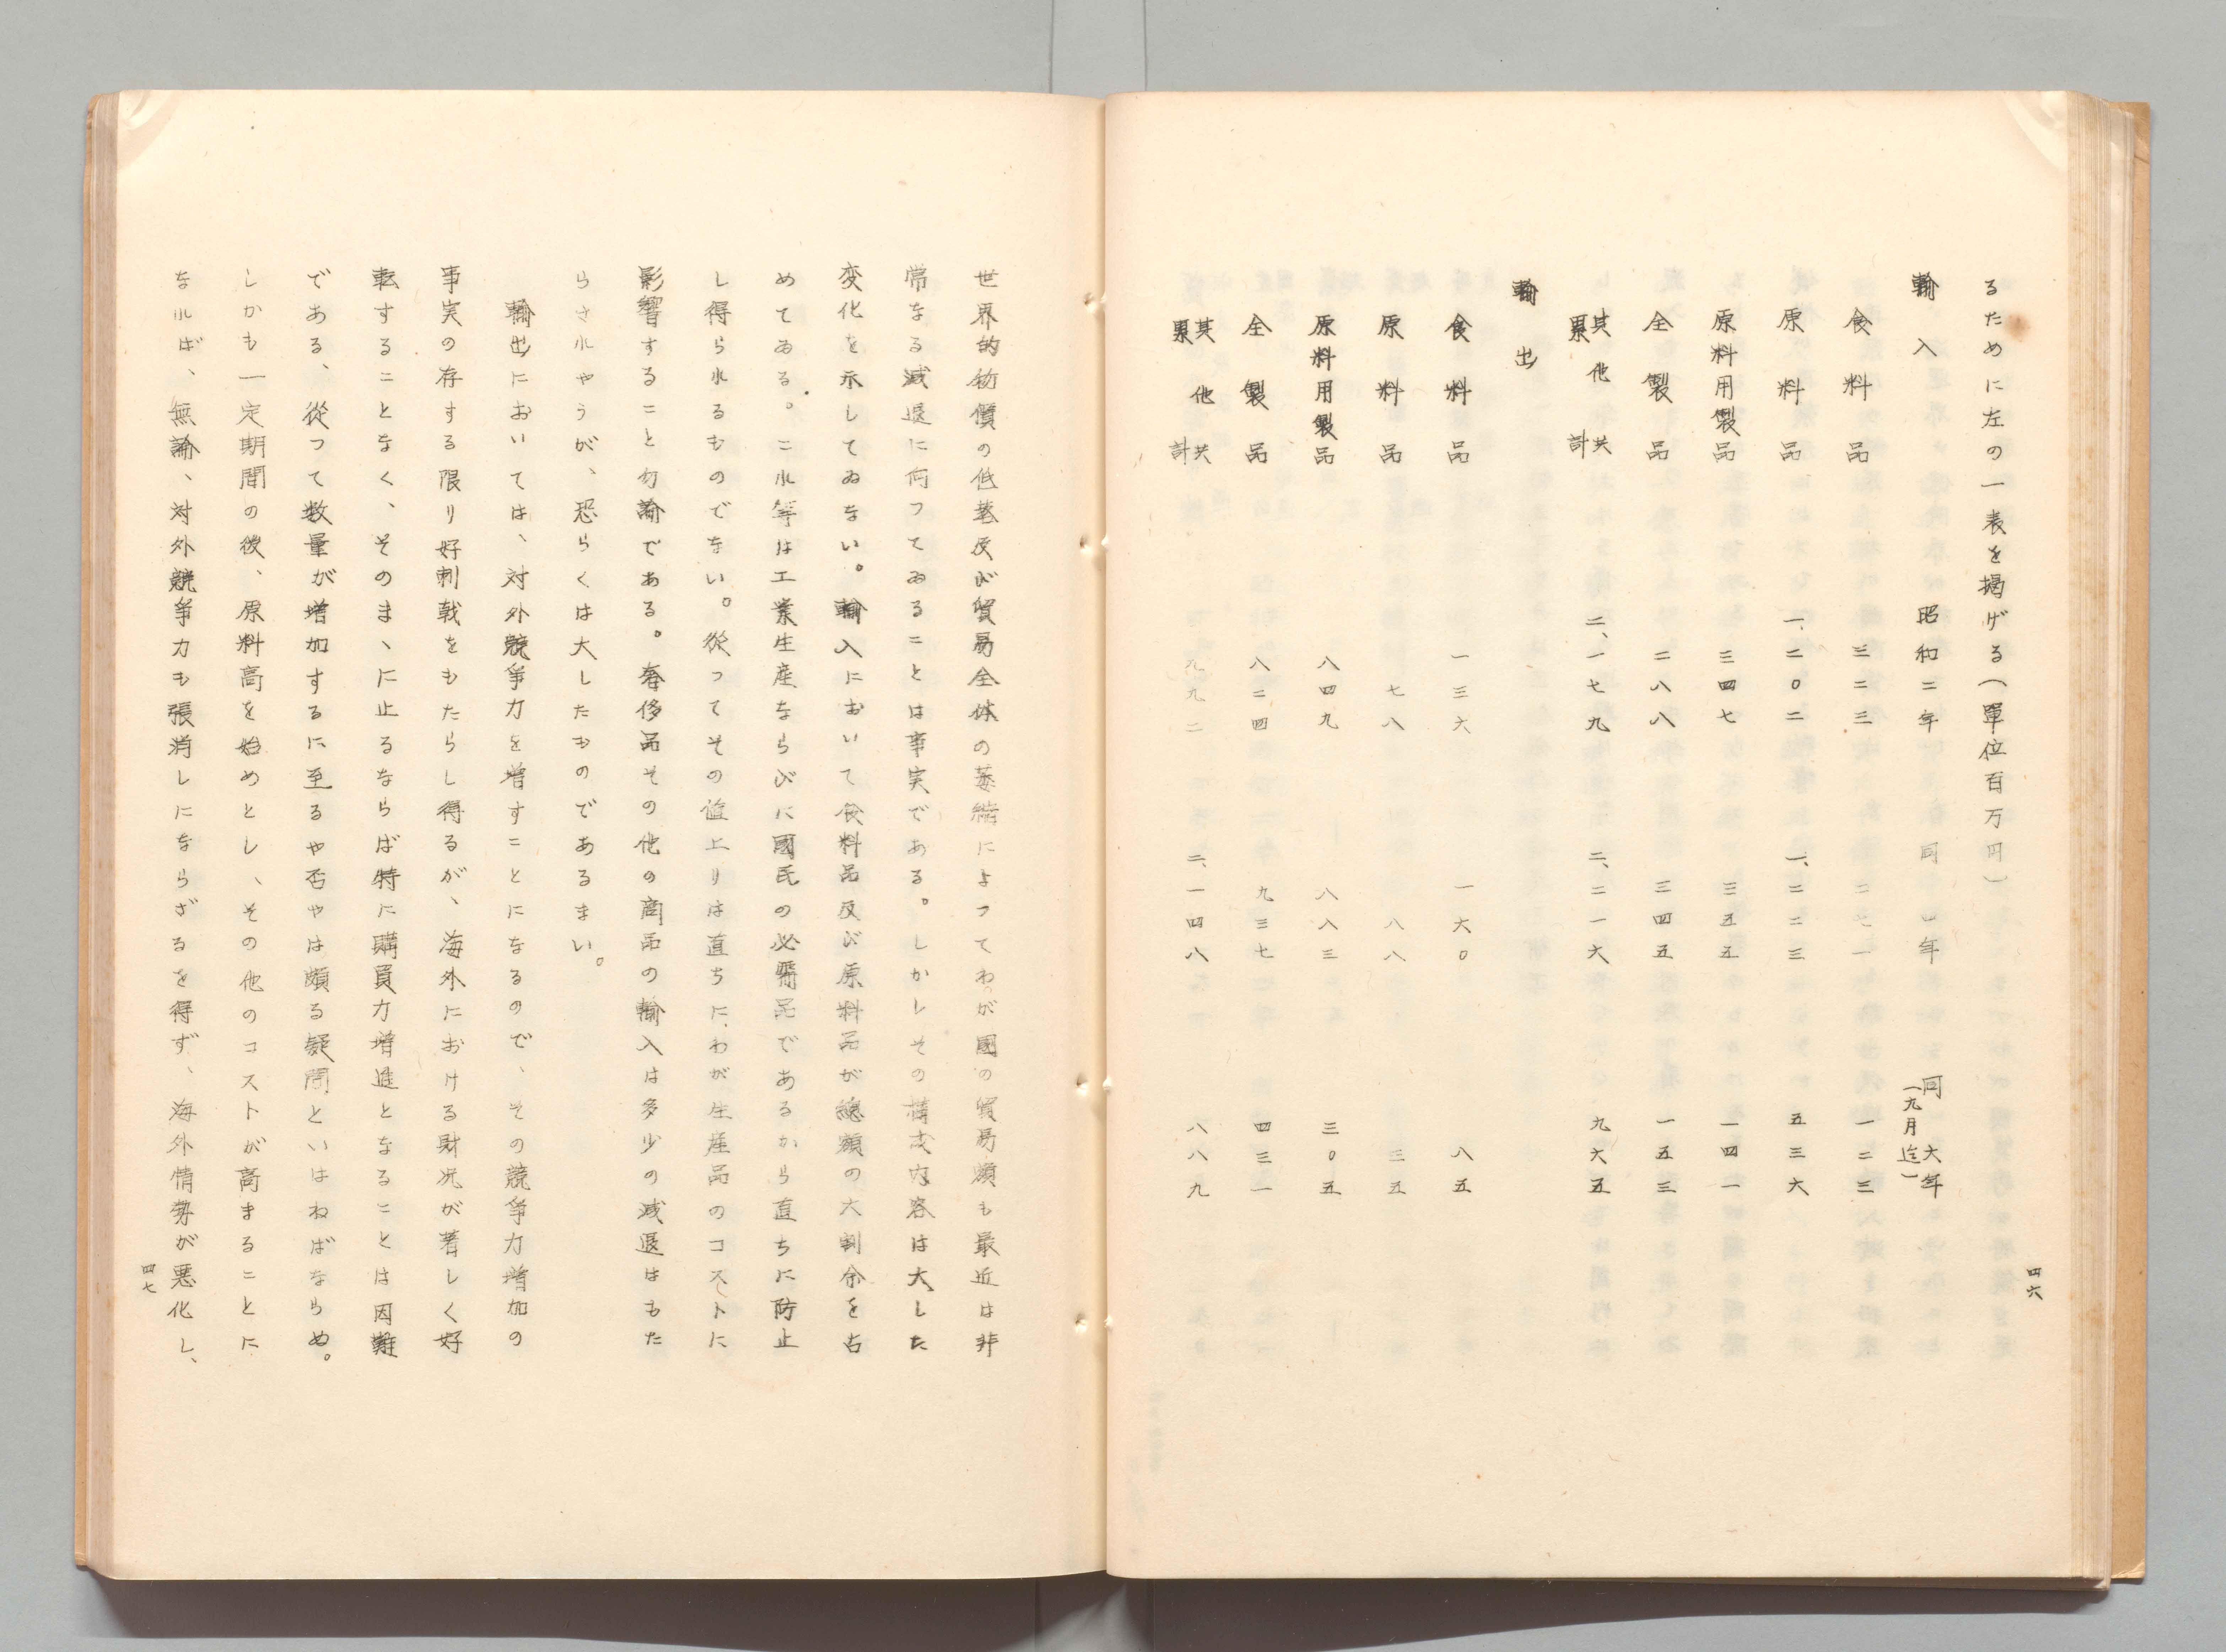 るために左の一表を掲げる（單位百万円）
輸入 昭和二年 同四年 同六年（一九月迄）
食料品 三二三 二七一 一二三
原料品 一、二〇二 一、二二三 五三六
原料用製品 三四七 三五五 一四一
全製品 二八八 三四五 一五三
其他共累計 二、一七九 二、二一六 九六五
輸出
食料品 一三六 一六〇 八五
原料品 七八 八八 三五
原料用製品 八四九 八八三 三〇五
全製品 八二四 九三七 四三一
其他共累計 九九二 二、一四八 八八九
四六
世界的物價の低落及び貿易全体の萎縮によつてわが國の貿易額も最近は非
常なる減退に向つてゐることは事実である。しかしその構成内容は大した
変化を示してゐない。輸入において食料品及び原料品が總額の大割合を占
めてゐる。これ等は工業生産ならびに國民の必需品であるから直ちに防止
し得られるものでない。從つてその値上りは直ちに、わが生産品のコストに
影響すること勿論である。奢侈品その他の商品の輸入は多少の減退はもた
らされやうが、恐らくは大したものであるまい。
輸出においては、対外競争力を増すことになるので、その競争力増加の
事実の存する限り好刺戟をもたらし得るが、海外における財況が著しく好
転することなく、そのまゝに止るならば特に購買力増進となることは困難
である、從つて数量が増加するに至るや否やは頗る疑問といはねばならぬ。
しかも一定期間の後、原料高を始めとし、その他のコストが高まることに
なれば、無論、対外競争力も張消しにならざるを得ず、海外情勢が悪化し、
四七